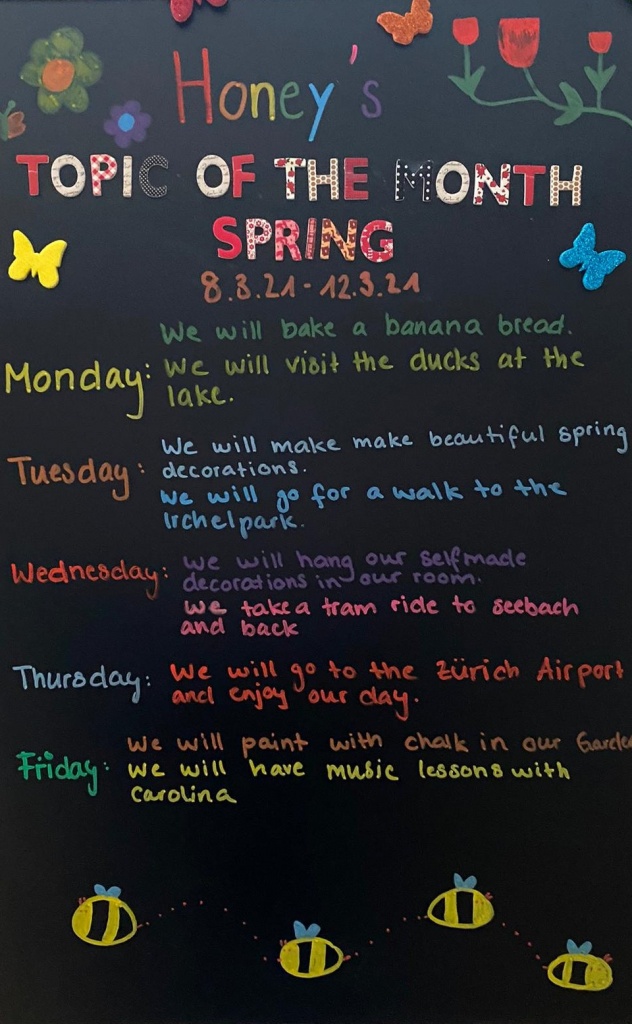 Honey's
TOPIC OF THE MONTH
SPRING
8.3.21 - 12.3.21
Monday: We will bake a banana bread.
We will visit the ducks at the
lake.
Tuesday: We will make make beautiful spring
decorations.
We will go for a walk to the
Irchelpark.
Wednesday: We will hang our selfmade
decorations in our room.
We take a tram ride to seebach
and back
Thursday: We will go to the Zürich Airport
and enjoy our day.
Friday: We will paint with chalk in our Garde
We will have music lessons with
Carolina